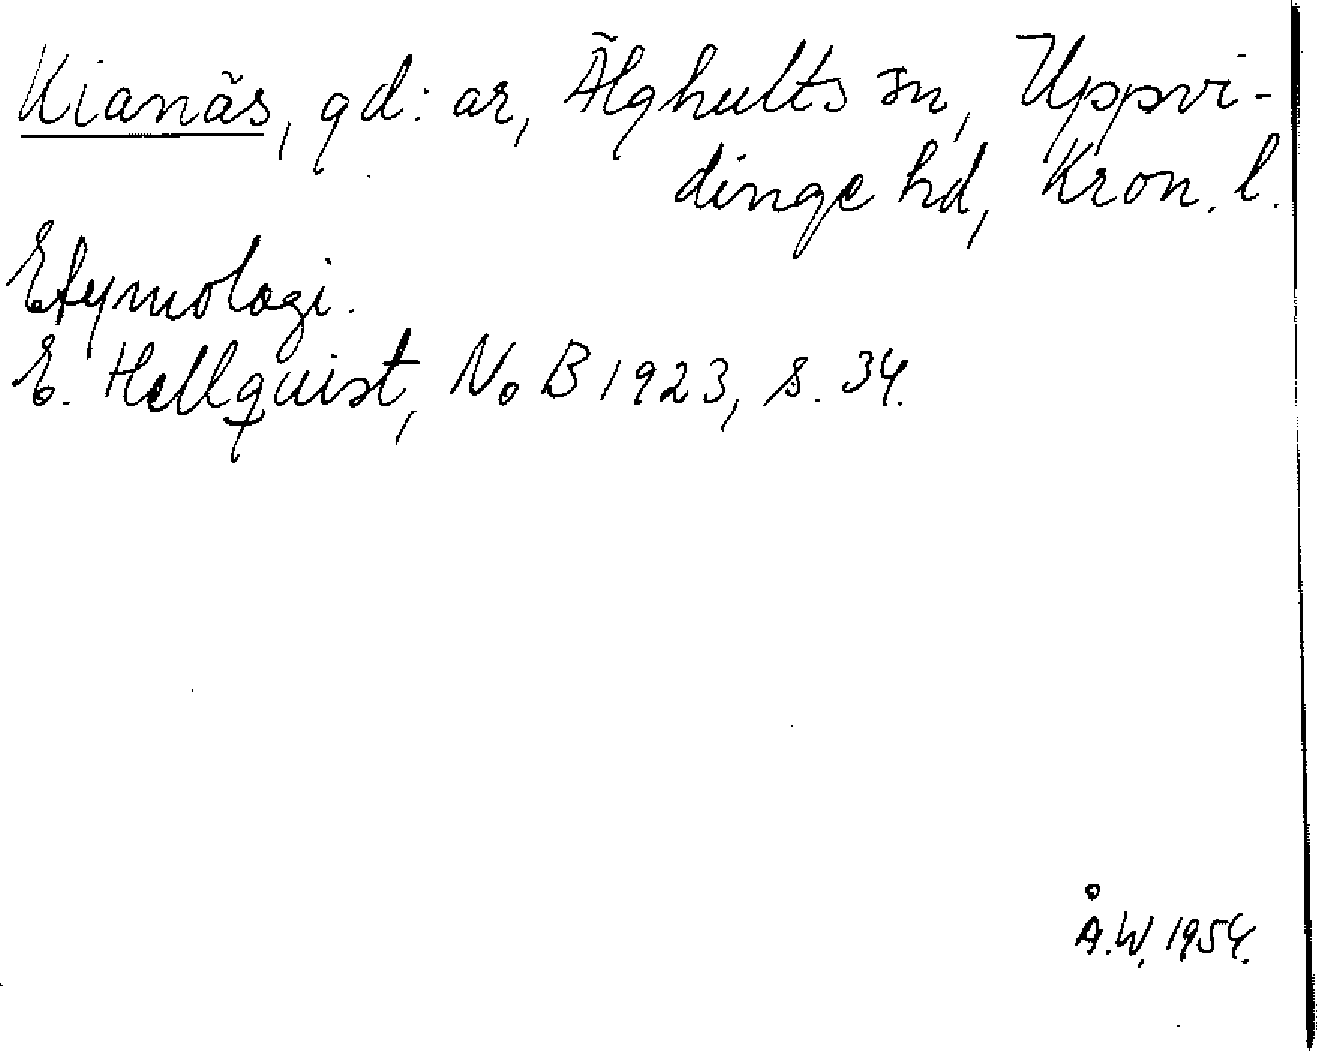 Kianäs, gd: ar, Älghults sn, Uppvi-
dinge hd, Kron. l.
Etymologi.
E. Hellquist, NoB 1923, s. 34.
Å.W. 1954.